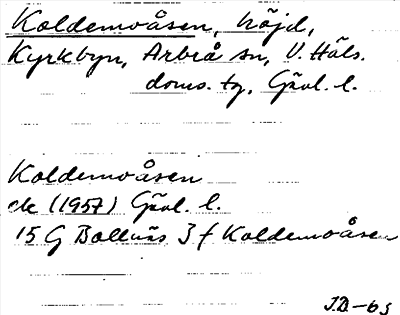 Koldemoåsen, höjd,
Kyrkbyn, Arbrå sn, V. Häls.
doms. tg, Gävl. l.
Koldemoåsen
ek (1957) Gävl. l.
15 G Bollnäs 3 f Koldemoåsen
J.D.-63